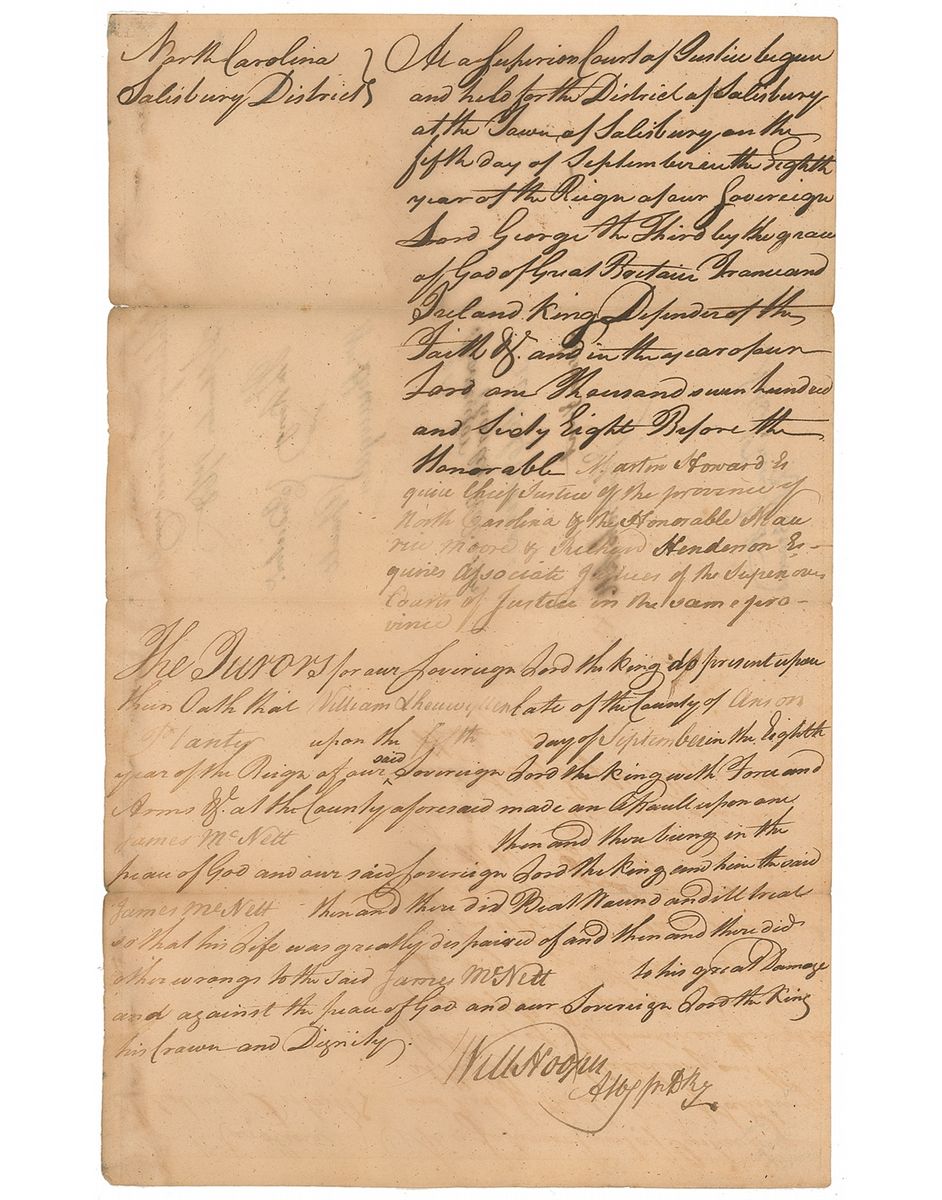 North Carolina
Salisbury District
At a Superior Court of Justice begun
and held for the District of Salisbury
at the Town of Salisbury on the
fifth day of September in the Eighth
year of the Reign of our Sovereign
Lord George the Third by the grace
of God of Great Britain France and
Ireland King Defender of the
Faith &c. and in the year of our
Lord one Thousand seven hundred
and Sixty Eight Before the
Honorable Martin Howard Es
quire Chief Justice of the province of
North Carolina & the Honorable Mau
rice Moore & Richard Henderson Es-
quires Associate Justices of the Superior
Courts of Justice in the same pro-
vince
The Jurors for our Sovereign Lord the King do present upon
their Oath that William late of the County of Anson
Planter upon the fifth day of September in the Eighth
year of the Reign of our said Sovereign Lord the King with Force and
Arms &c. at the County aforesaid made an Assault upon one
James McNett then and there being in the
peace of God and our said Sovereign Lord the King and him the said
James McNett then and there did Beat Wound and ill treat
so that his Life was greatly despaired of and then and there did
other wrongs to the said James McNett to his great Damage
and against the peace of God and our Sovereign Lord the King
his Crown and Dignity.
Will Hooper